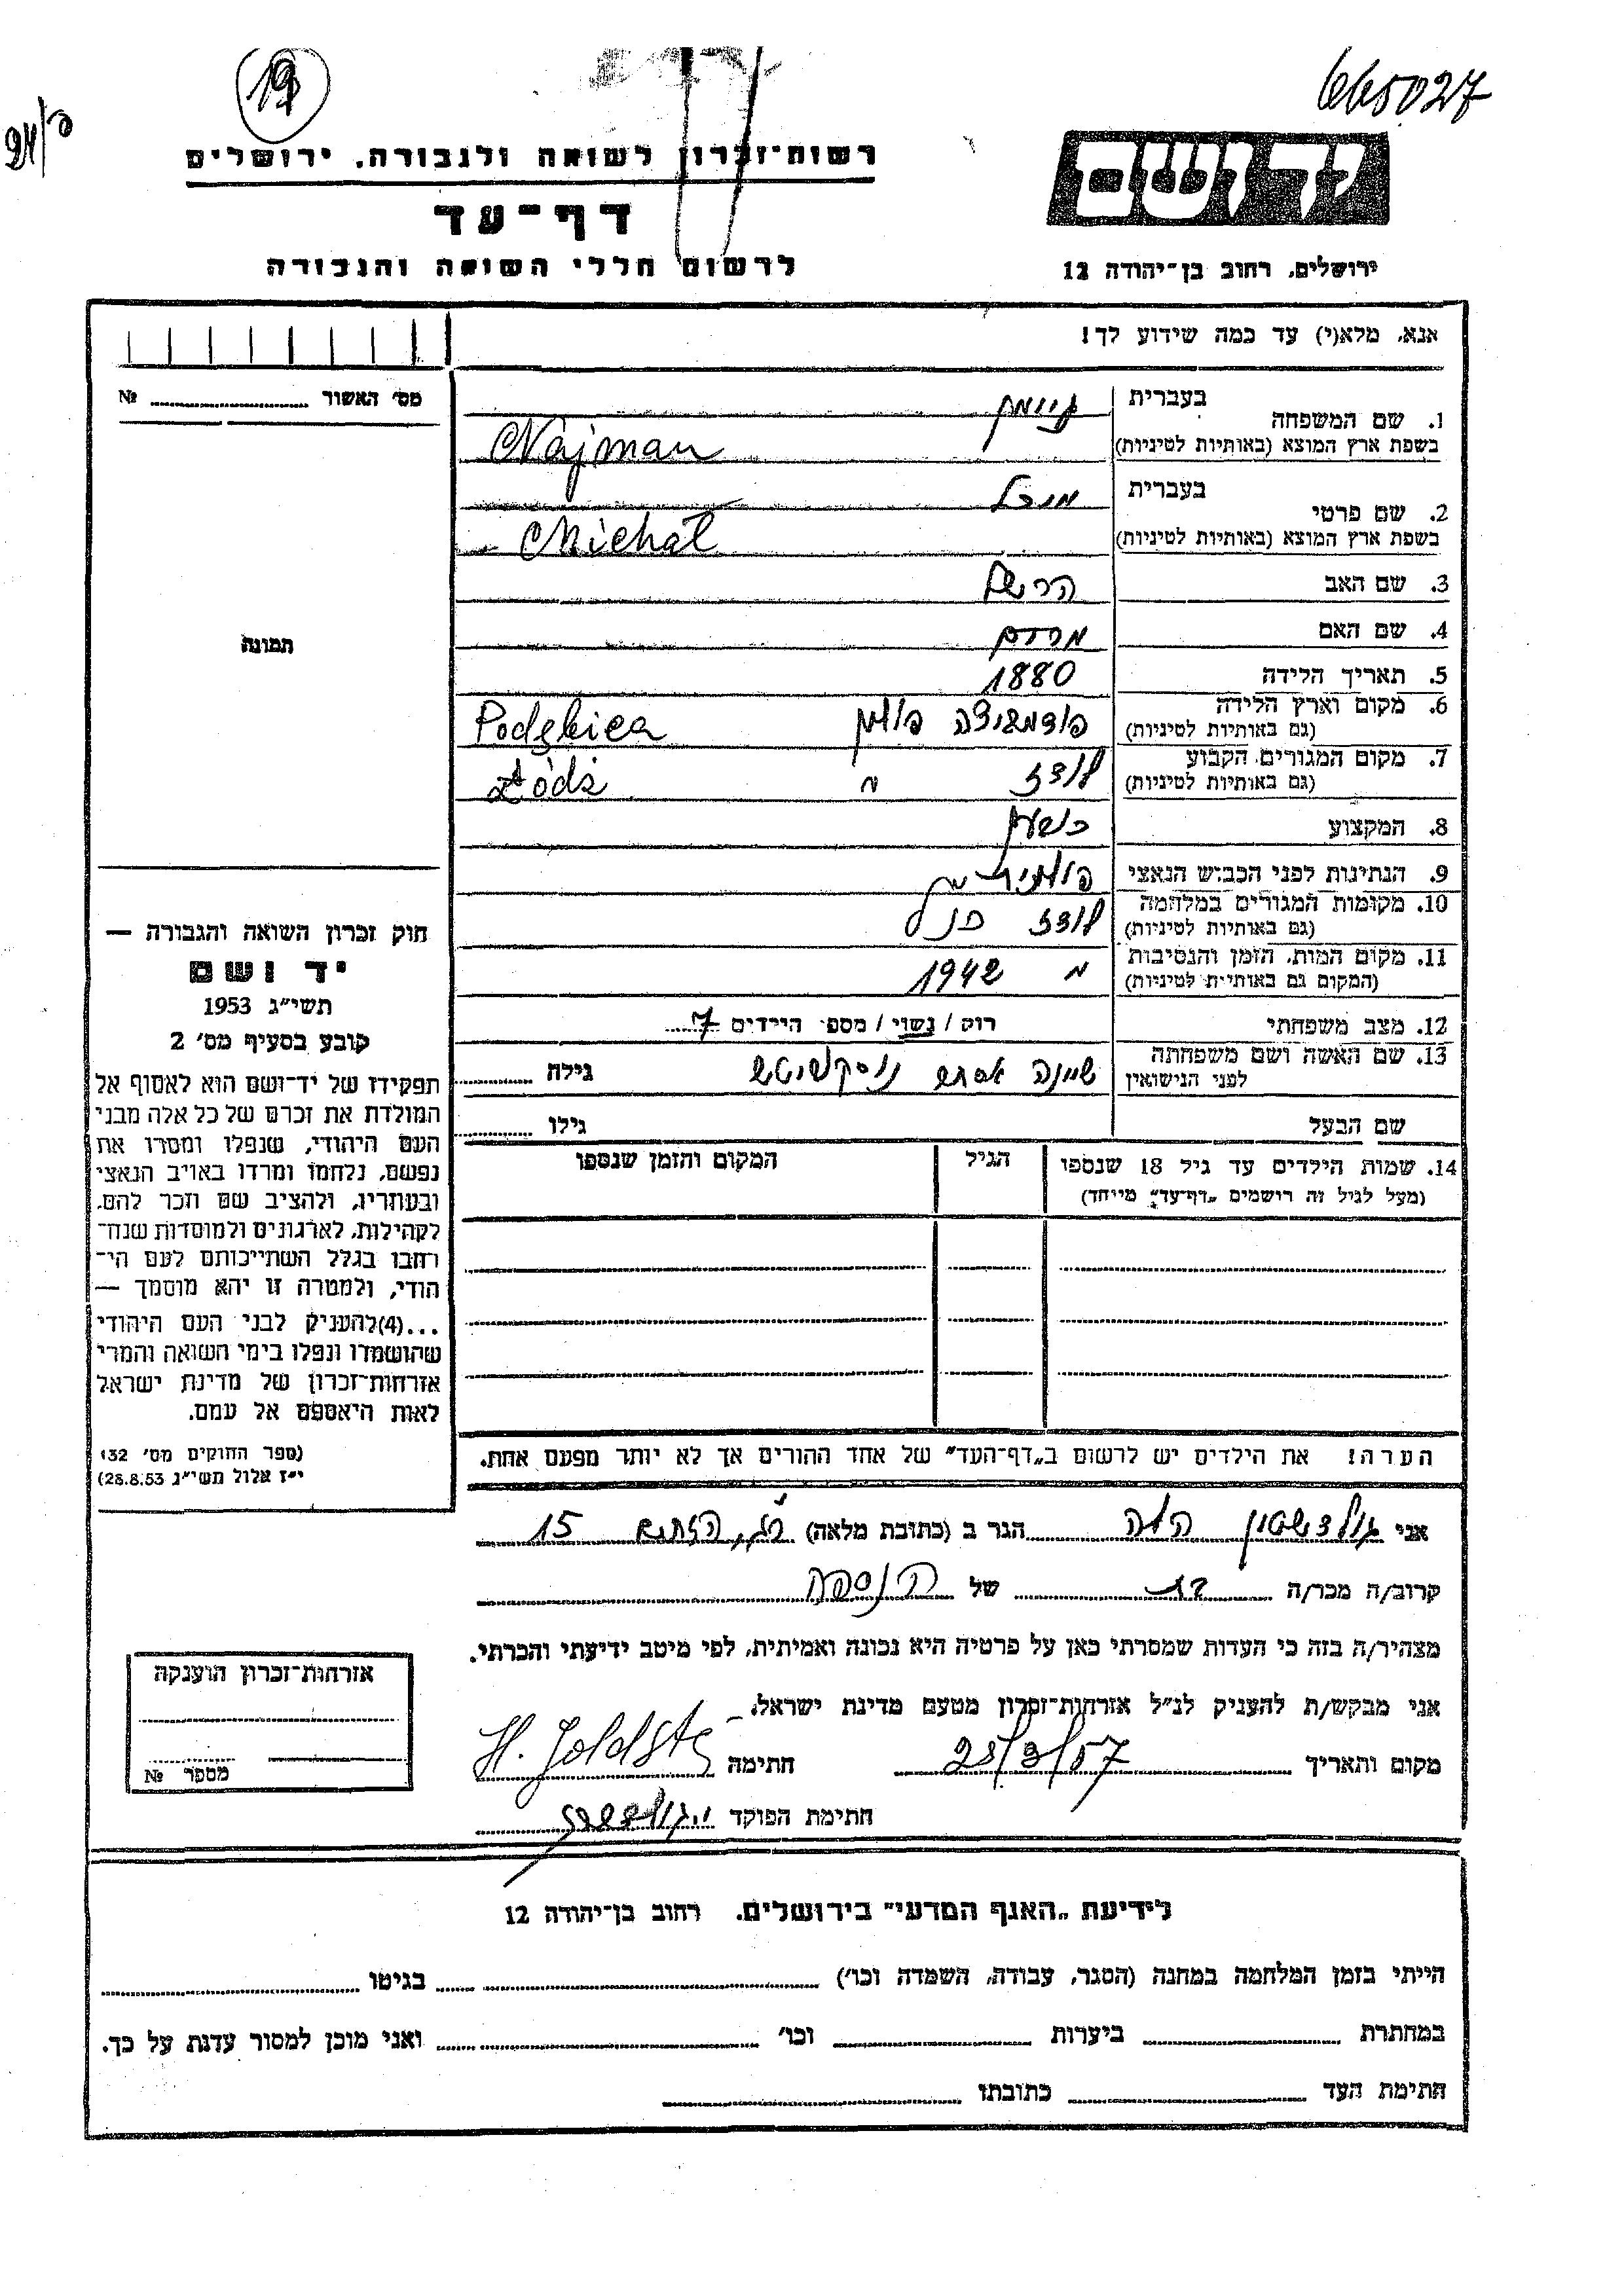 19
665027
רשות־זכרון לשואה ולגבורה, ירושלים
יד ושם
דף־עד
לרשום חללי השואה והגבורה
ירושלים, רחוב בן־יהודה 12
אנא, מלא(י) עד כמה שידוע לך!
מס' האשור № 
1. שם המשפחה בעברית ניימן
בשפת ארץ המוצא (באותיות לטיניות) Najman
2. שם פרטי בעברית מיכל
בשפת ארץ המוצא (באותיות לטיניות) Michał
3. שם האב הרשל
4. שם האם מרים
5. תאריך הלידה 1880
6. מקום וארץ הלידה (גם באותיות לטיניות) פולין Podębice
7. מקום המגורים הקבוע (גם באותיות לטיניות) לודז " Łódź
8. המקצוע
9. הנתינות לפני הכבוש הנאצי פולנית
10. מקומות המגורים במלחמה (גם באותיות לטיניות) לודז כנ"ל
11. מקום המות, הזמן והנסיבות (המקום גם באותיות לטיניות) 1942
12. מצב משפחתי רוק / נשוי / מספר הילדים 7
13. שם האשה ושם משפחתה לפני הנישואין שיינה אסתר גילה
שם הבעל גילו
14. שמות הילדים עד גיל 18 שנספו (מעל לגיל זה רושמים „דף־עד” מייחד) הגיל המקום והזמן שנספו
הערה! את הילדים יש לרשום ב„דף־העד” של אחד ההורים אך לא יותר מפעם אחת.
תמונה
חוק זכרון השואה והגבורה —
יד ושם
תשי״ג 1953
קובע בסעיף מס' 2
תפקידו של יד־ושם הוא לאסוף אל
המולדת את זכרם של כל אלה מבני
העם היהודי, שנפלו ומסרו את
נפשם, נלחמו ומרדו באויב הנאצי
ובעוזריו, ולהציב שם וזכר להם,
לקהילות, לארגונים ולמוסדות שנח־
רחבו בגלל השתייכותם לעם הי־
הודי, ולמטרה זו יהא מוסמך —
...(4)להעניק לבני העם היהודי
שהושמדו ונפלו בימי השואה והמרי
אזרחות־זכרון של מדינת ישראל
לאות היאספם אל עמם.
(ספר החוקים מס' 132
י״ז אלול תשי״ג 28.8.53)
אני גולדשטיין הלה הגר ב (כתובת מלאה) 15
קרוב/ה מכר/ה בת של הנספה
מצהיר/ה בזה כי העדות שמסרתי כאן על פרטיה היא נכונה ואמיתית, לפי מיטב ידיעתי והכרתי.
אני מבקש/ת להעניק לנ״ל אזרחות־זכרון מטעם מדינת ישראל.
מקום ותאריך 25/3/57 חתימה H. Goldste
חתימת הפוקד
אזרחות־זכרון הוענקה
מספר №
לידיעת „האגף המדעי” בירושלים, רחוב בן־יהודה 12
הייתי בזמן המלחמה במחנה (הסגר, עבודה, השמדה וכו') בגיטו
במחתרת ביערות וכו' ואני מוכן למסור עדות על כך.
חתימת העד כתובתו